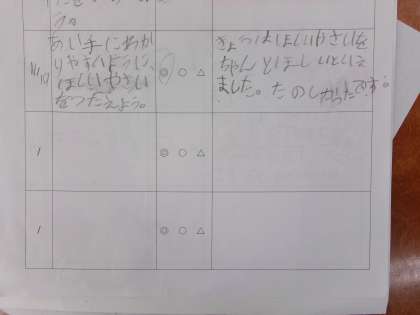 う。
11/10
あい手にわか
りやすいように、
ほしいやさい
をつたえよう。
◎ ○ △
きょうはほしいやさいを
ちゃんとほしいといえ
ました。たのしかったです。
/
◎ ○ △
/
◎ ○ △